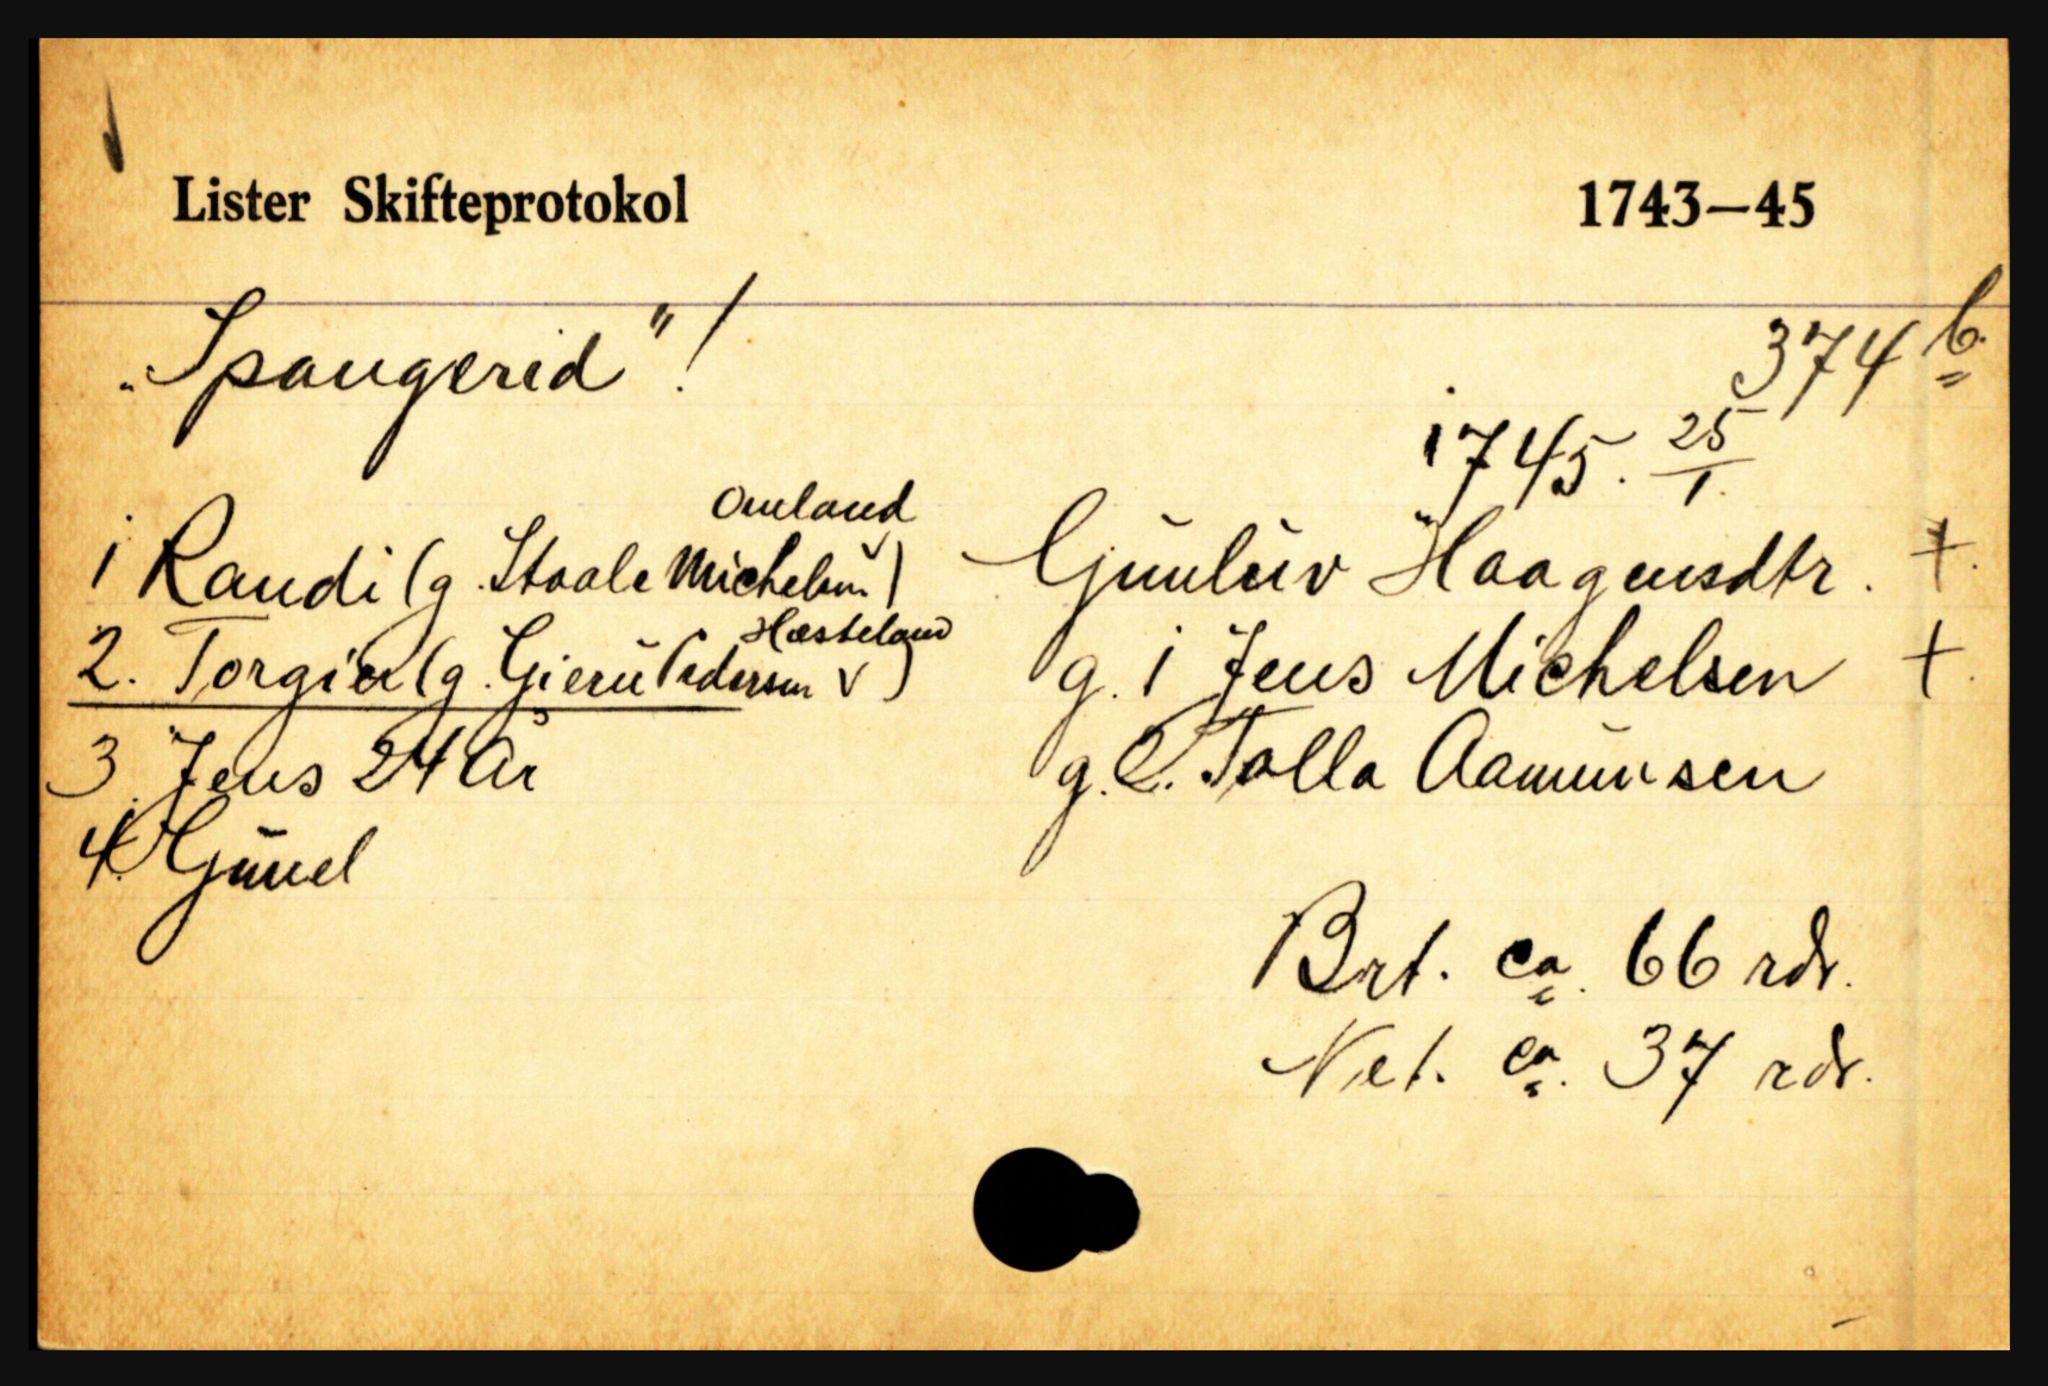 Lister Skifteprotokol 1743—45
„Spangerid"!
374 b.
1745. 25/1.
Omland
1 Randi (g. Staale Michelsen v) Gunluv Haagensdtr. +.
Hæsteland
2. Torgier (g. Gieru Pedersen v) g. 1 Jens Michelsen +.
3. Jens 24 år g. 2. Tolla Aamunsen
4. Gunel
Brt. ca. 66 rdr.
Net. ca. 37 rdr.